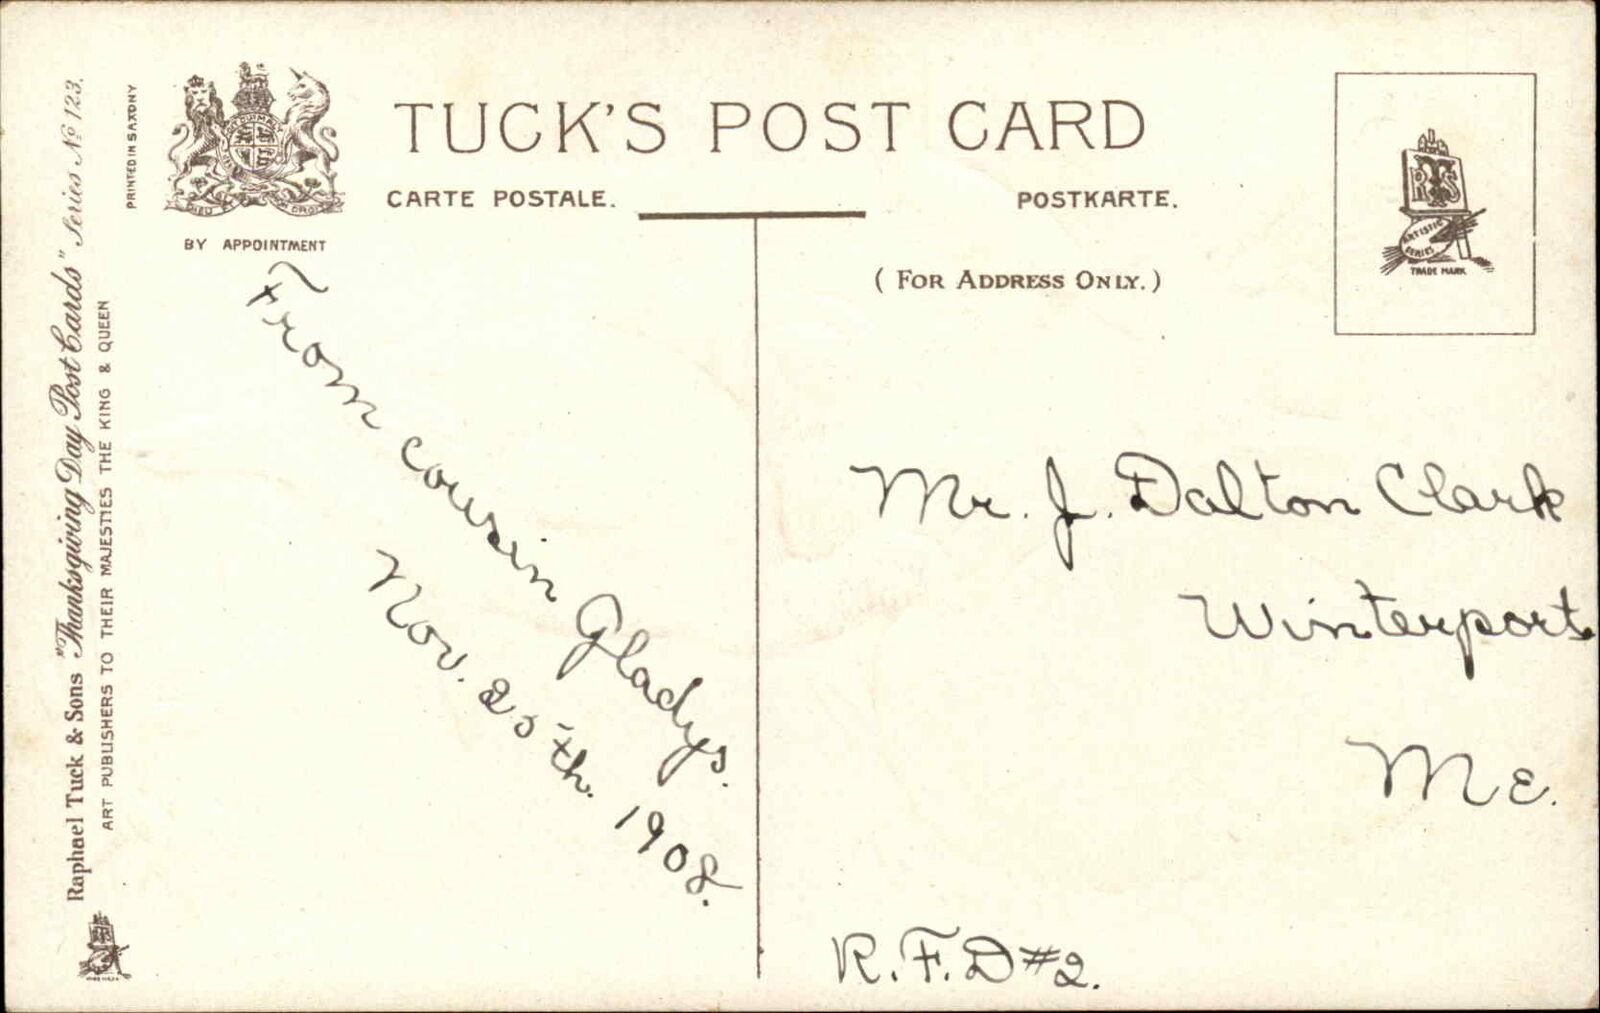 TUCK'S POST CARD
CARTE POSTALE.
POSTKARTE.
BY APPOINTMENT
(FOR ADDRESS ONLY.)
PRINTED IN SAXONY
Raphael Tuck & Sons "Thanksgiving Day Post Cards" Series Nº 123.
ART PUBLISHERS TO THEIR MAJESTIES THE KING & QUEEN
RTS
ARTISTIC
SERIES
TRADE MARK
From cousin Gladys.
Nov. 25th. 1908.
Mr. J. Dalton Clark
Winterport
Me.
R.F.D #2.